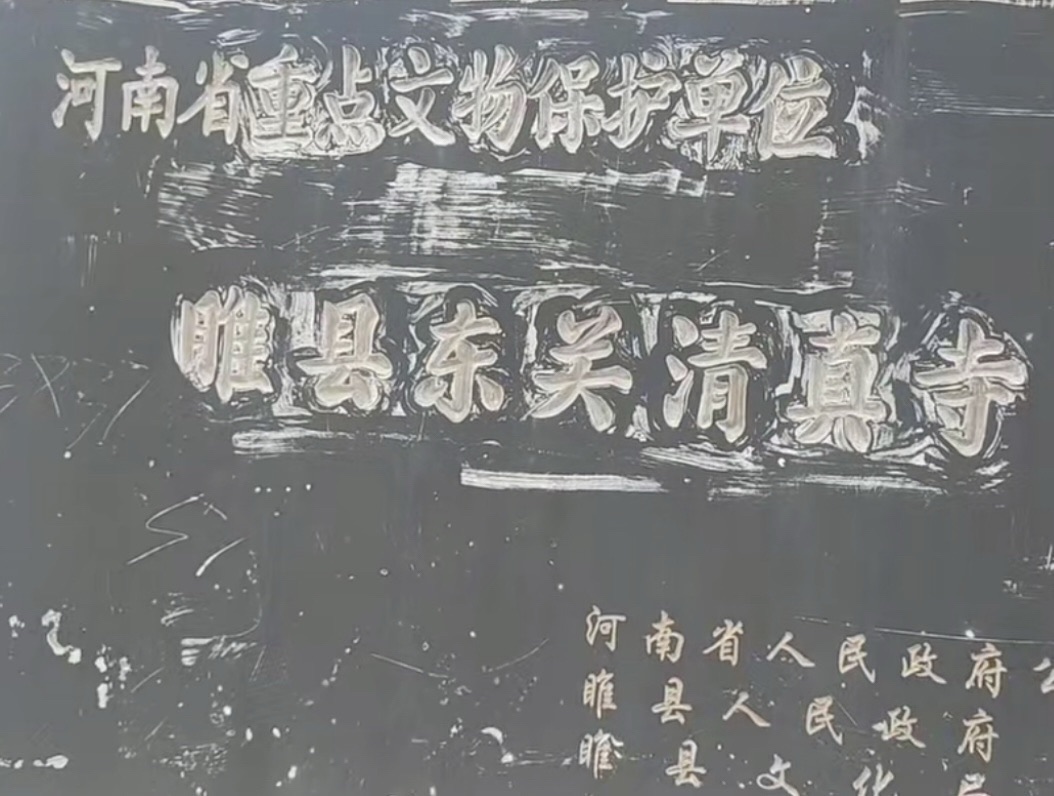 河南省重点文物保护单位
睢县东关清真寺
河南省人民政府
睢县人民政府
睢县文化